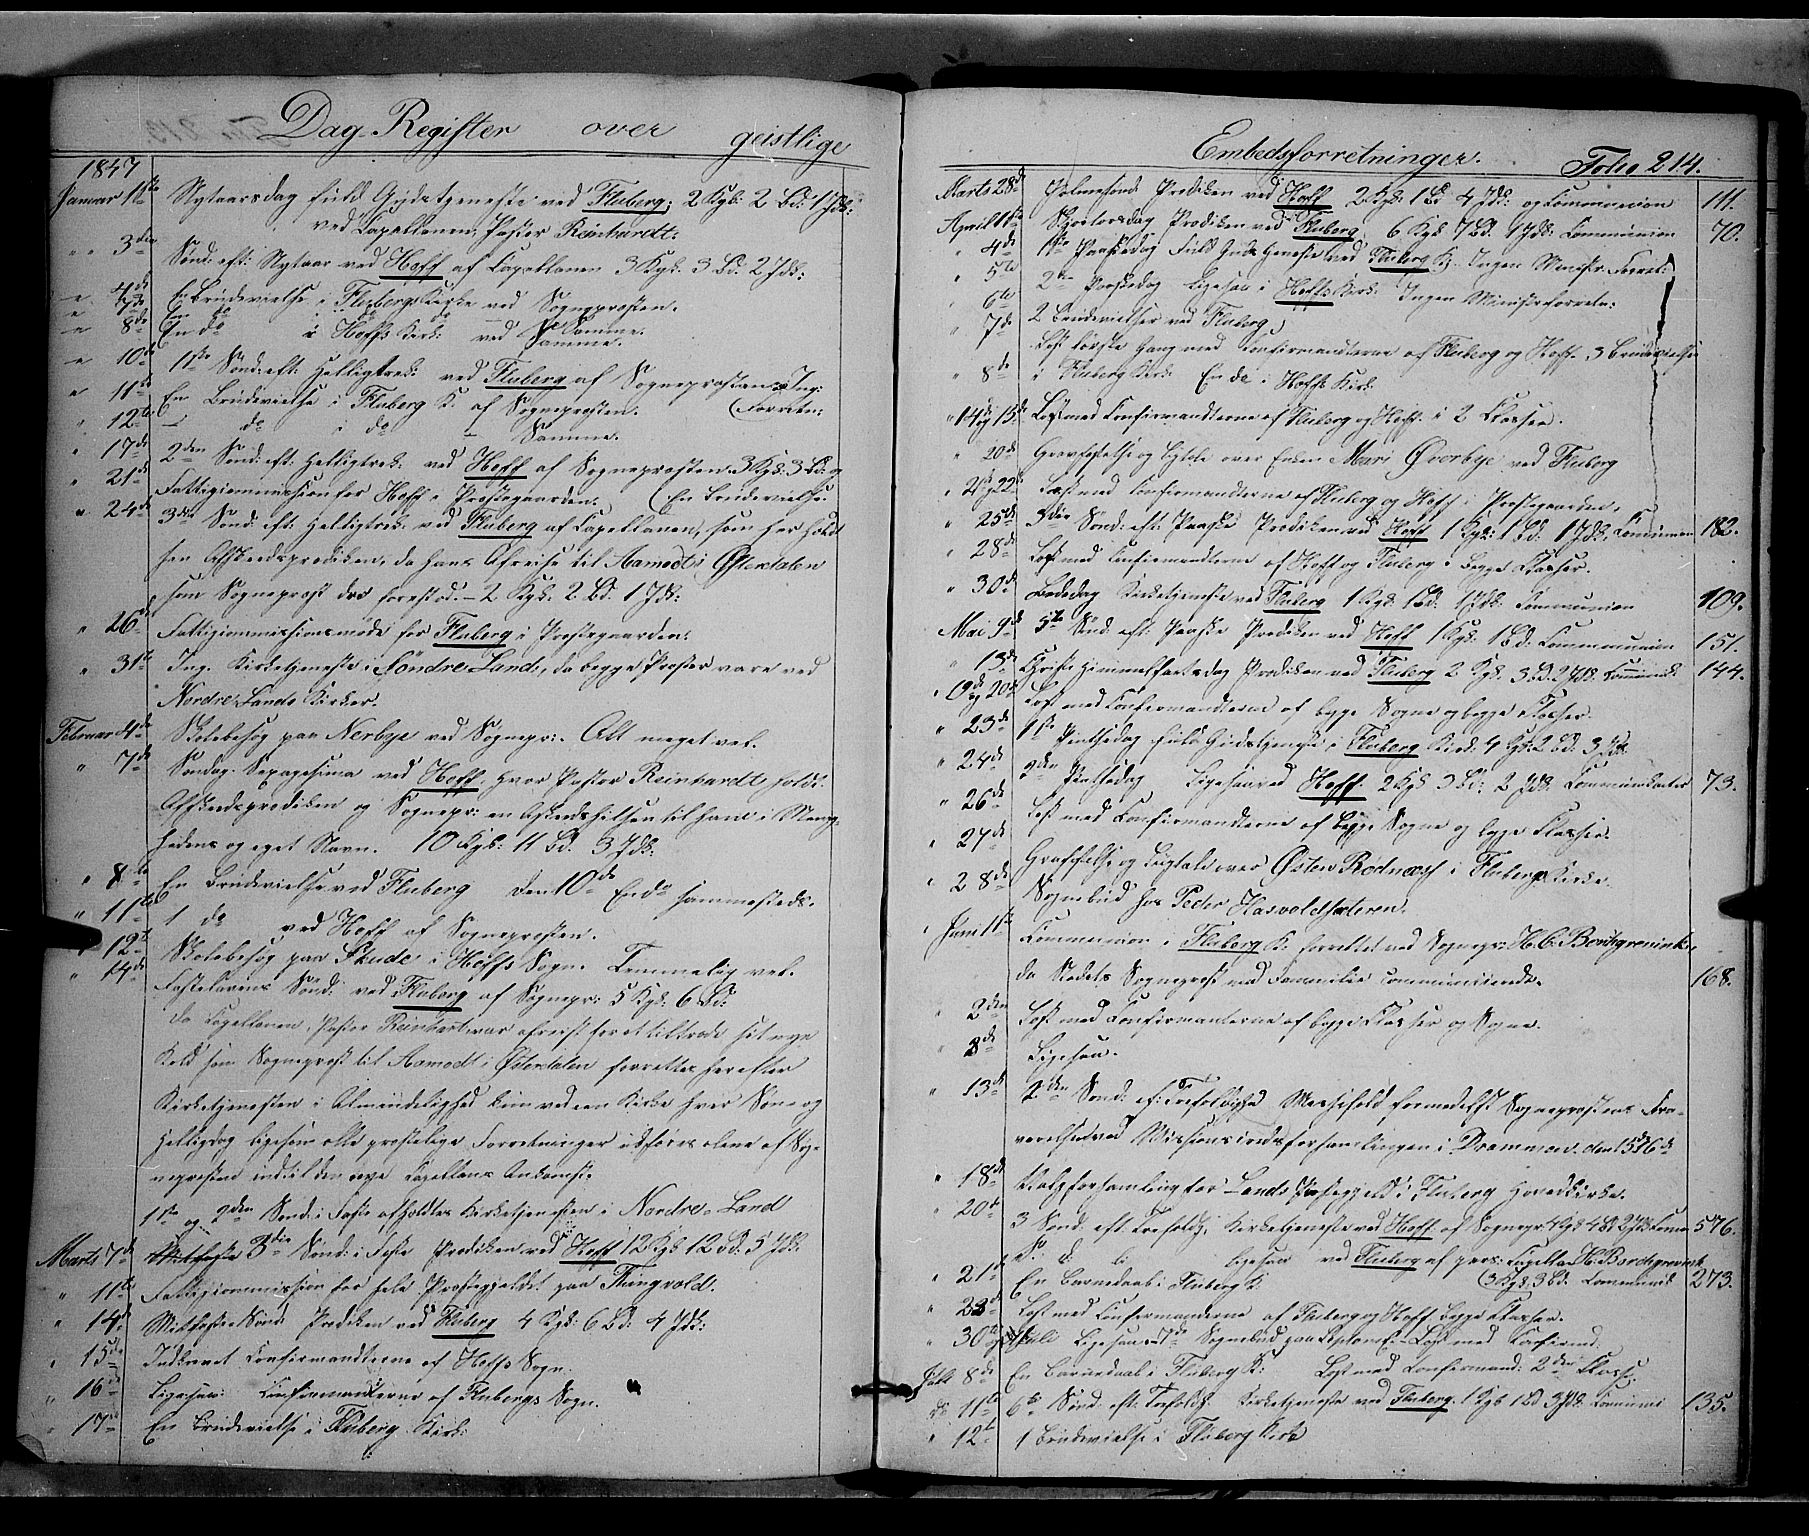 Dag-Register over geistlige
1847
Januar 1ste Nytaarsdag fuld Gudstjeneste ved Fluberg; 2 Kgk: 2 Bd: 1 Jdk:
ved Capellanen, Pastor Reinhardt.
" " 3die Sönd: eft: Nytaar ved Hoff af Capellanen 3 Kgk. 3 Bd: 2 Jdk:
" 4de En Brudevielse i Flubergs Kirke ved Sogneprosten.
" 7de En do i do do
" 8de En do i Hoffs Kirk: ved Samme.
" 10de 1ste Sönd: eft: Helligtrek: ved Fluberg af Sogneprosten. Ing:
" 11te En Brudevielse i Fluberg K. af Sogneprosten. (Forretn:
" 12te - do i do - Samme.
" 17de 2den Sönd: eft: Helligtrek: ved Hoff af Sogneprosten. 3 Kgk: 3 Bd: og
" 21de Fattigcommission for Hoff i Prostegaarden. (En Brudevielse.
" 24de 3die Sönd: eft: Helligtrek: ved Fluberg af Capellanen, som her holdt
sin Afskedsprædiken, da hans Afreise til Aamodt i Østerdalen
som Sogneprest der forestod. - 2 Kgk: 2 Bd: 1 Jdk:
" 26de Fattigcommissionsmøde for Fluberg i Prostegaarden.
" 31te Ing. Kirketjeneste i Söndre Land, da begge Præster vare ved
Nordre Lands Kirker.
Februar 4de Skolebesøg paa Nerbye ved Sognepr: - Alt meget vel.
" 7de Söndag Sexagesima ved Hoff, hvor Pastor Reinhardt holdt
Afskedsprædiken og Sognepr: en Afskedshilsen til ham i Menig-
hedens og eget Navn. 10 Kgk: 11 Bd. 3 Jdk:
" 8de En Brudevielse ved Fluberg den 10de En do sammesteds.
" 11te 1 do ved Hoff af Sogneprosten.
" 12te Skolebesøg paa Skude i Hoffs Sogn. Temmelig vel.
" 14de Fastelavens Sönd: ved Fluberg af Sognepr: 5 Kgk: 6 Bd:
Da Capellanen, Pastor Reinhart, var afreist for at tiltræde sit nye
Kald som Sogneprest til Aamodt i Østerdalen forrettes herefter
Kirketjenesten i Almindelighed kun ved een Kirke hver Sön- og
Helligdag ligesom alle præstelige Forretninger udføres alene af Sog-
neprosten indtil den nye Capellans Ankomst.
1ste og 2den Sönd: i Faste afholdtes Kirketjenesten i Nordre-Land
Marts 7de 3die Sönd: i Faste Prædiken ved Hoff 12 Kgk 12 Bd: 5 Jdk:
" 11te Fattigcommission for hele Prestegjeldet paa Tingvold.
" 14de Midfaste Sönd: Prædiken ved Fluberg 4 Kgk: 6 Bd: 4 Jdk:
" 15de Indskrevet Confirmandterne af Hoffs Sogn.
" 16de Ligesaa Confirmandterne af Flubergs Sogn.
" 17de En Brudevielse i Fluberg Kirk:
Embedsforretninger. Folio 214.
Marts 28de Palmesönd. Prædiken ved Hoff 2 Kgk 1 Bd 4 Jdk: og Communion 111.
April 1ste Skjertorsdag Prædiken ved Fluberg 6 Kgk 7 Bd. 1 Jdk: Communion 70.
" 4de 1ste Paaskedag fuld Gudstjeneste ved Fluberg K. Ingen Minister. Forret:
" 5te 2den Paaskedag Ligesaa i Hoffs Kirk: Ingen Ministerforretn:
" 6te 2 Brudevielser ved Fluberg.
" 7de Læst første Gang med Confirmandterne af Fluberg og Hoff. 3 Brudevielser
" 8de i Fluberg Kirk: En do i Hoffs Kirk:
" 14de og 15de Læst med Confirmandterne af Fluberg og Hoff i 2 Classer.
" 20de Gravfestelse og Ligtale over Enken Mari Øvorbye ved Fluberg
" 21de og 22de Læst med Confirmandterne af Fluberg og Hoff i Prostegaarden.
" 25de 3die Sönd: eft: Paaske Prædiken ved Hoff 1 Kgk: 1 Bd: 1 Jdk. Communion 182.
" 28de Læst med Confirmandterne af Hoff og Fluberg i begge Classer.
" 30de Bededag Kirketjeneste ved Fluberg 1 Kgk 1 Bd: 1 Jdk: Communion 109.
Mai 9de 5te Sönd: eft: Paaske Prædiken ved Hoff 1 Kgk: 1 Bd: Communion 151.
" 13de Christi Himmelfartsdag Prædiken ved Fluberg 2 Kgk. 3 Bd. 2 Jdk. Communik: 144.
" 19de og 20de Læst med Confirmandterne af begge Sogne og begge Classer.
" 23de 1ste Pintsedag fuld Gudstjeneste i Fluberg Kirk. 4 Kgk 2 Bd: 3 Jdk
" 24de 2den Pintsedag Ligesaa ved Hoff. 2 Kgk 3 Bd: 2 Jdk. Communikanter 73.
" 26de Læst med Confirmandterne af begge Sogne og begge Classer.
" 27de Gravfestelse og Ligtale over Østen Rodnæss i Fluberg Kirke.
" 28de Sognebud hos Peder Hasvoldsæteren.
Juni 1ste Communion i Fluberg K. forrettet ved Sognepr: H. C. Borchgrevink,
da Stedets Sogneprost med Familie Communicerede. 168.
" 2den Læst med Confirmanterne af begge Classer og Sogne.
" 8de Ligesaa.
" 13de 2den Sönd: ef: Trefoldighed Messefald formedelst Sogneprostens Fra-
værelse ved Missions forsamlingen i Drammen den 15de 16de
" 18de Valgforsamling for Lands Præstegjeld i Fluberg Hovedkirke.
" 20de 3 Sönd: eft. Trefoldigh. Kirketjeneste ved Hoff af Sognepr: 4 Kgk 4 Bd 2 Jdk: Commun 576.
ligesaa ved Fluberg af pers: Capellan H. Borchgrevink
" 21de En Barnedaab i Fluberg K. (3 Kgk. 3 Bd. Communik 273.
" 23de Læst med Confirmanderne af Fluberg og Hoff begge Classer.
" 30te Ligesaa Sognebud paa Læst med Confirmd.
Juli 8de En Barnedaab i Fluberg K: Læst med Confirmand: 2den Classe.
do 11te 6te Sönd: eft: Trefoldigh: Kirketjeneste ved Fluberg. 1 Kgk 1 Bd 3 Jdk: Communi 135.
" 12te 1 Brudevielse i Fluberg Kirk